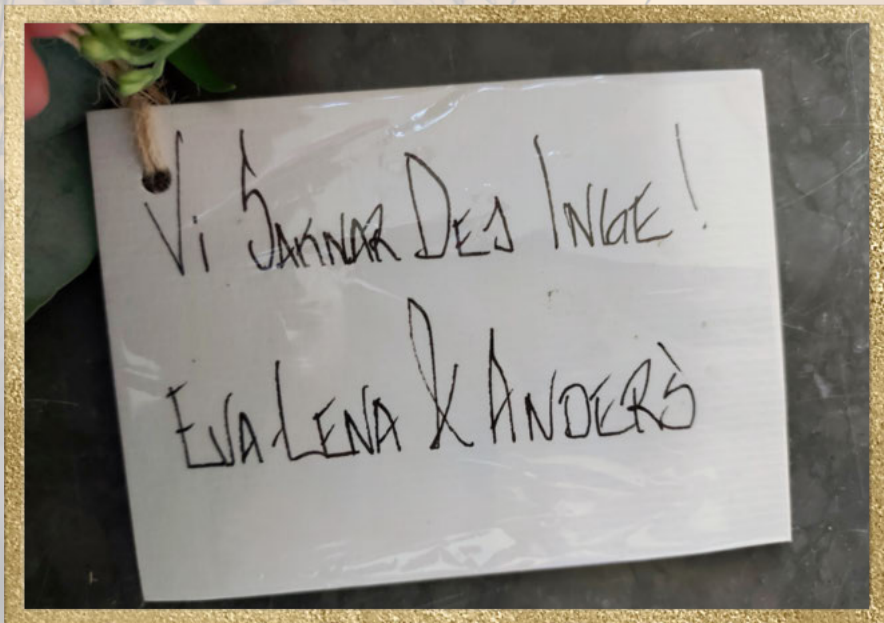 Vi SAKNAR DEJ INGE!
EVA-LENA & ANDERS